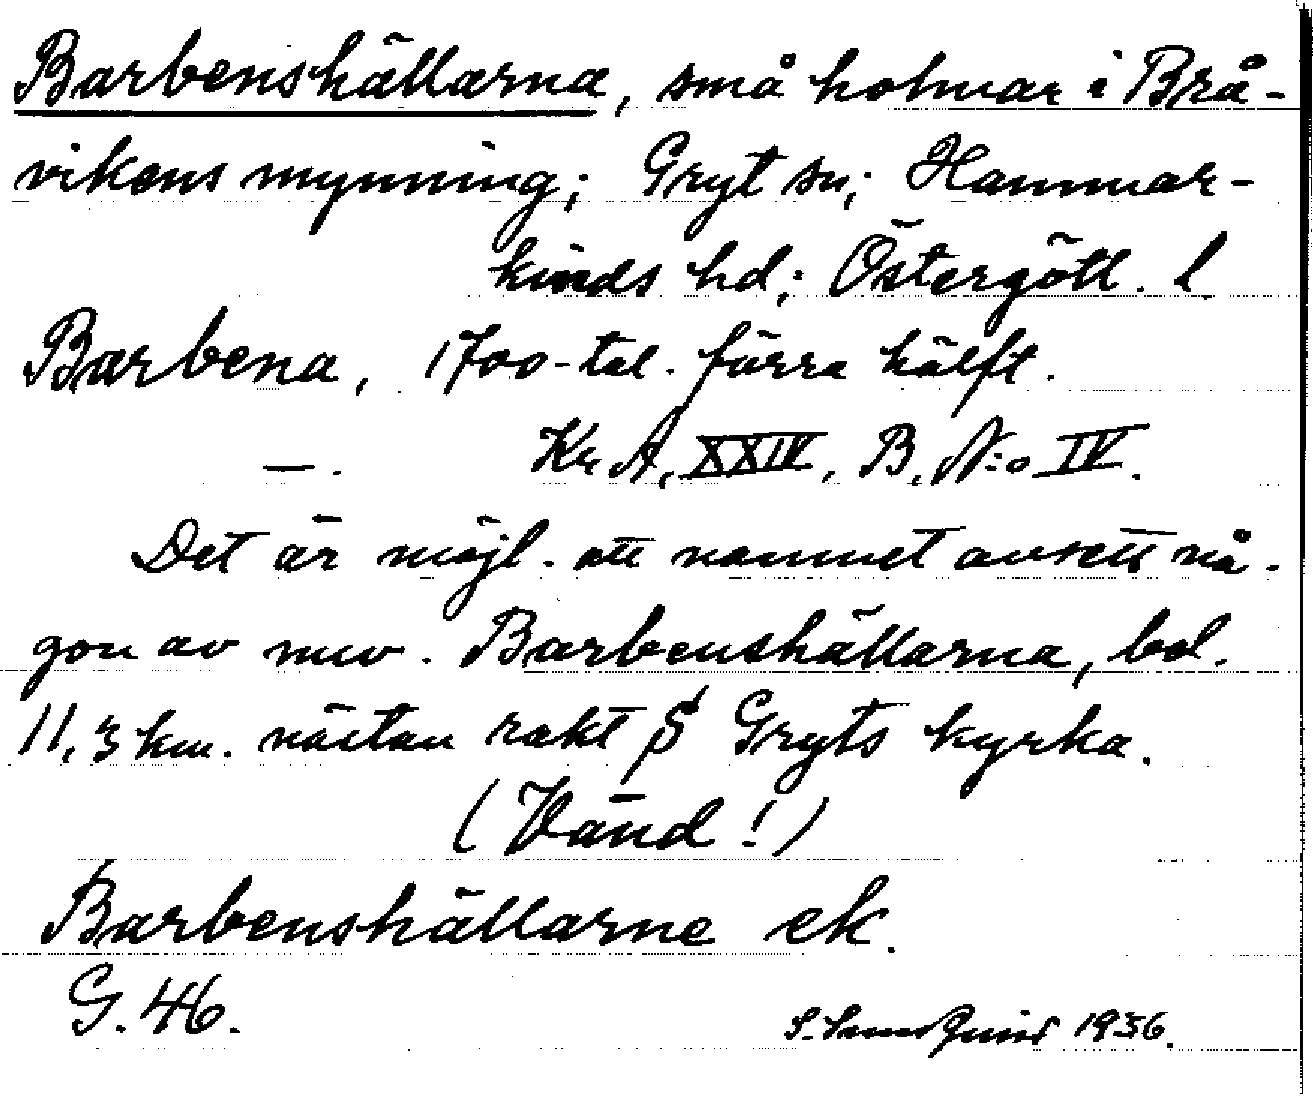 Barbenshällarna, små holmar i Brå-
vikens mynning; Gryt sn; Hammar-
kinds hd; Östergötl. l.
Barbena, 1700-tal. förra hälft.
—. Kr A, XXIV, B, N:o IV.
Det är möjl. att namnet avsett nå-
gon av nuv. Barbenshällarna, bel.
11,3 km. nästan rakt S Gryts kyrka.
(Vänd!)
Barbenshällarne ek.
G. 46.
S. 1936.